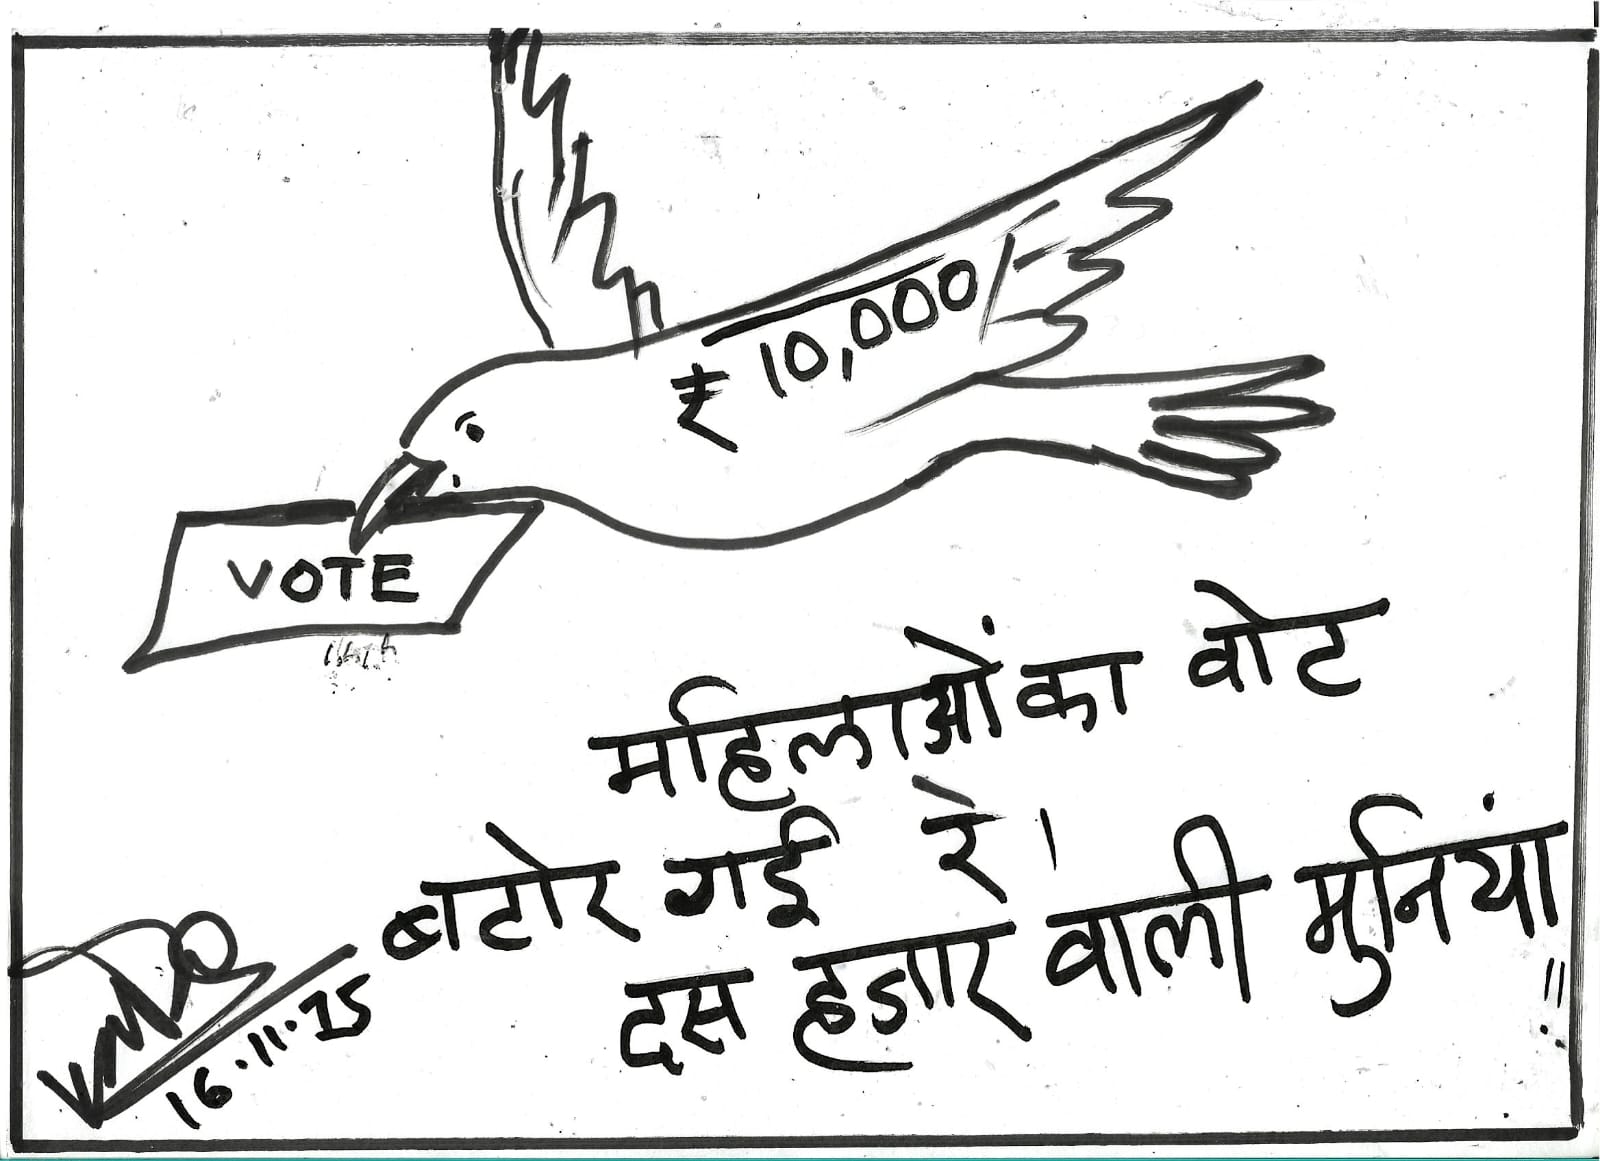 ₹ 10,000/-
VOTE
महिलाओं का वोट
बटोर गई रे।
दस हजार वाली मुनियां
!!
16.11.25